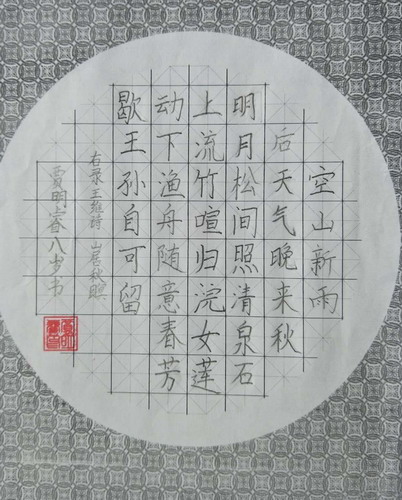 空山新雨
后天气晚来秋
明月松间照清泉石
上流竹喧归浣女莲
动下渔舟随意春芳
歇王孙自可留
右录王维诗 山居秋暝
贾明睿八岁书